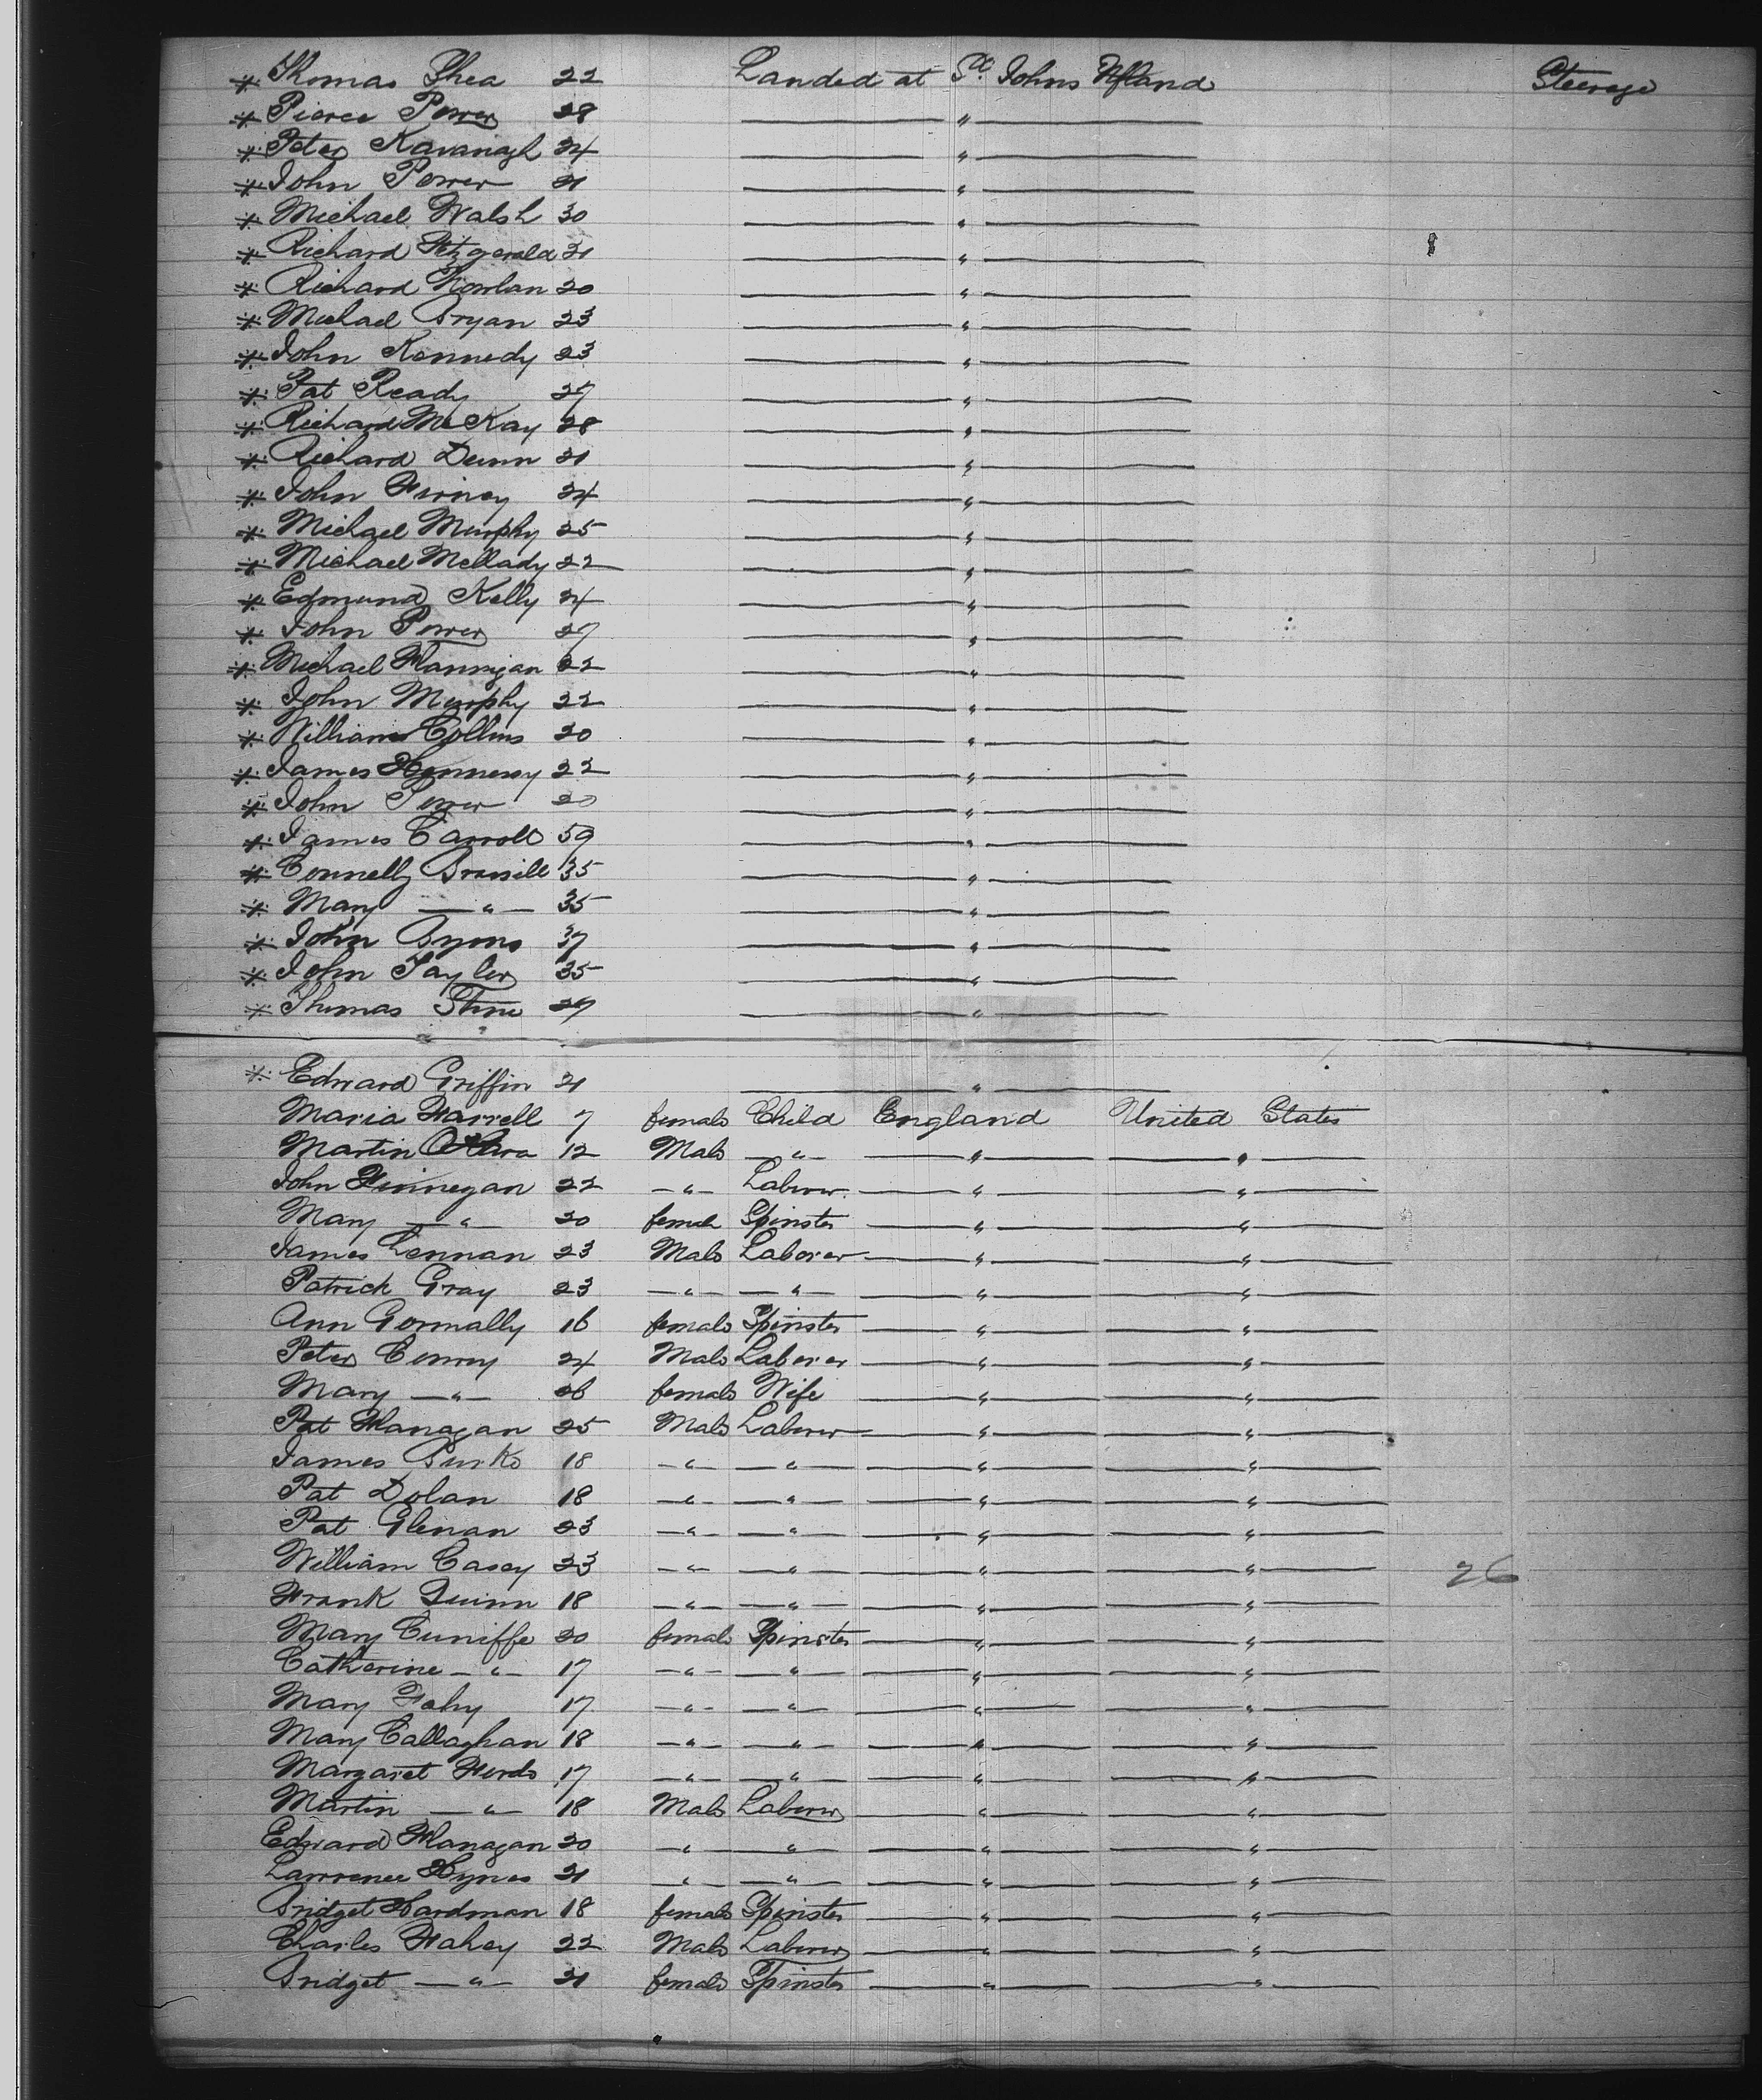 ⁜ Thomas Shea 22 Landed at St. Johns Nfland Steerage
⁜ Pierce Power 28 — " —
⁜ Peter Kavanagh 24 — " —
⁜ John Power 21 — " —
⁜ Michael Walsh 30 — " —
⁜ Richard Fitzgerald 21 — " —
⁜ Richard Nowlan 20 — " —
⁜ Michael Bryan 23 — " —
⁜ John Kennedy 23 — " —
⁜ Pat Ready 27 — " —
⁜ Richard McKay 28 — " —
⁜ Richard Dunn 21 — " —
⁜ John Furney 24 — " —
⁜ Michael Murphy 25 — " —
⁜ Michael Mellady 22 — " —
⁜ Edmund Kelly 24 — " —
⁜ John Power 27 — " —
⁜ Michael Flannigan 22 — " —
⁜ John Murphy 22 — " —
⁜ William Collins 20 — " —
⁜ James Hennessy 22 — " —
⁜ John Power 20 — " —
⁜ James Carroll 59 — " —
⁜ Connelly Brassill 35 — " —
⁜ Mary — " — 35 — " —
⁜ John Byons 37 — " —
⁜ John Tayler 35 — " —
⁜ Thomas 27 — " —
⁜ Edward Griffin 21 — " —
Maria Farrell 7 female Child England United States
Martin OHara 12 Male — " — — " — — " —
John Finnegan 22 — " — Laborer — " — — " —
Mary — " — 20 female Spinster — " — — " —
James Lennan 23 Male Laborer — " — — " —
Patrick Gray 23 — " — — " — — " — — " —
Ann Gormally 16 female Spinster — " — — " —
Peter Conroy 24 Male Laborer — " — — " —
Mary — " — 26 female Wife — " — — " —
Pat Flanagan 25 Male Laborer — " — — " —
James Burke 18 — " — — " — — " — — " —
Pat Dolan 18 — " — — " — — " — — " —
Pat Glenan 23 — " — — " — — " — — " —
William Casey 23 — " — — " — — " — — " — 26
Frank Quinn 18 — " — — " — — " — — " —
Mary Cuniffe 20 female Spinster — " — — " —
Catherine — " — 17 — " — — " — — " — — " —
Mary Fahy 17 — " — — " — — " — — " —
Mary Callaghan 18 — " — — " — — " — — " —
Margaret Forde 17 — " — — " — — " — — " —
Martin — " — 18 Male Laborer — " — — " —
Edward Flanagan 20 — " — — " — — " — — " —
Lawrence Hynes 21 — " — — " — — " — — " —
Bridget Hardman 18 female Spinster — " — — " —
Charles Fahey 22 Male Laborer — " — — " —
Bridget — " — 21 female Spinster — " — — " —